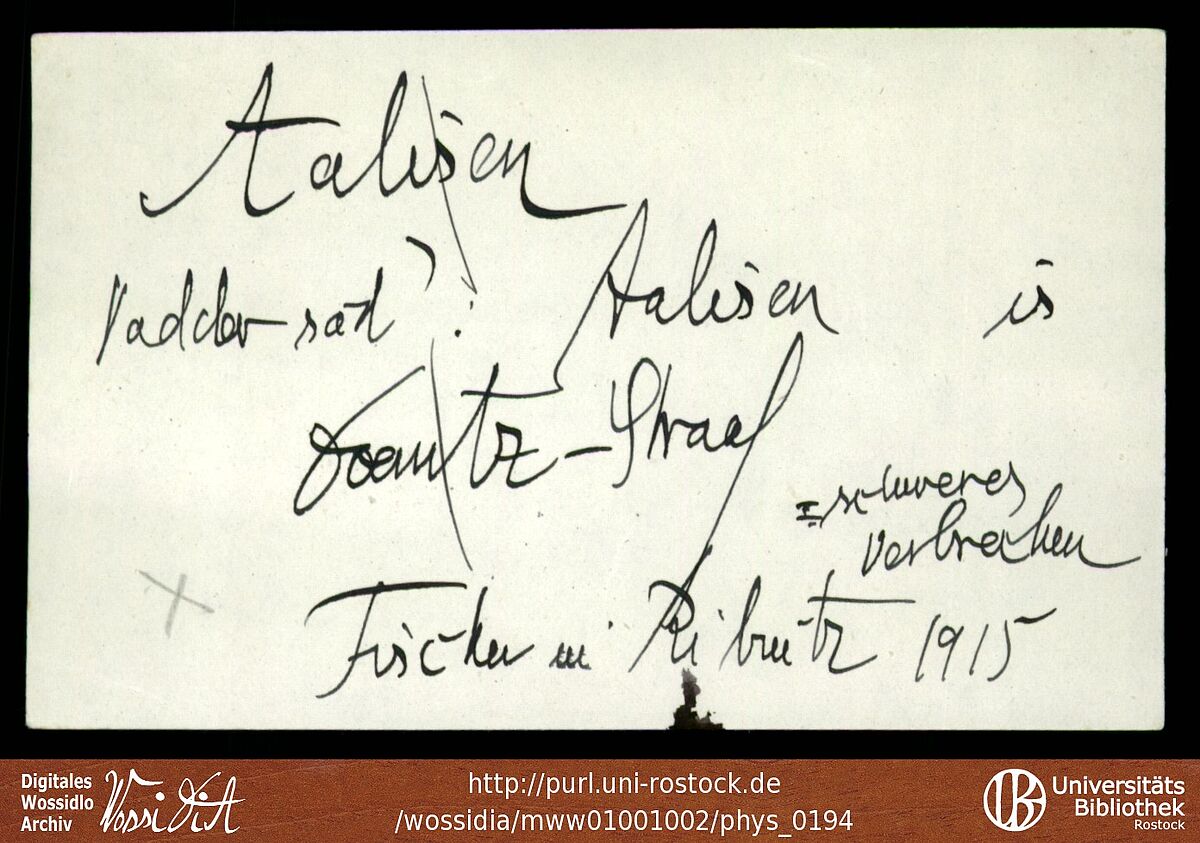 Aalisen
Vadder säd: Aalisen is
Doemitz-Straaf
= schweres
Verbrechen
Fischer in Ribnitz 1915
Digitales
Wossidlo
Archiv
WossiDiA
http://purl.uni-rostock.de
/wossidia/mww01001002/phys_0194
Universitäts
Bibliothek
Rostock